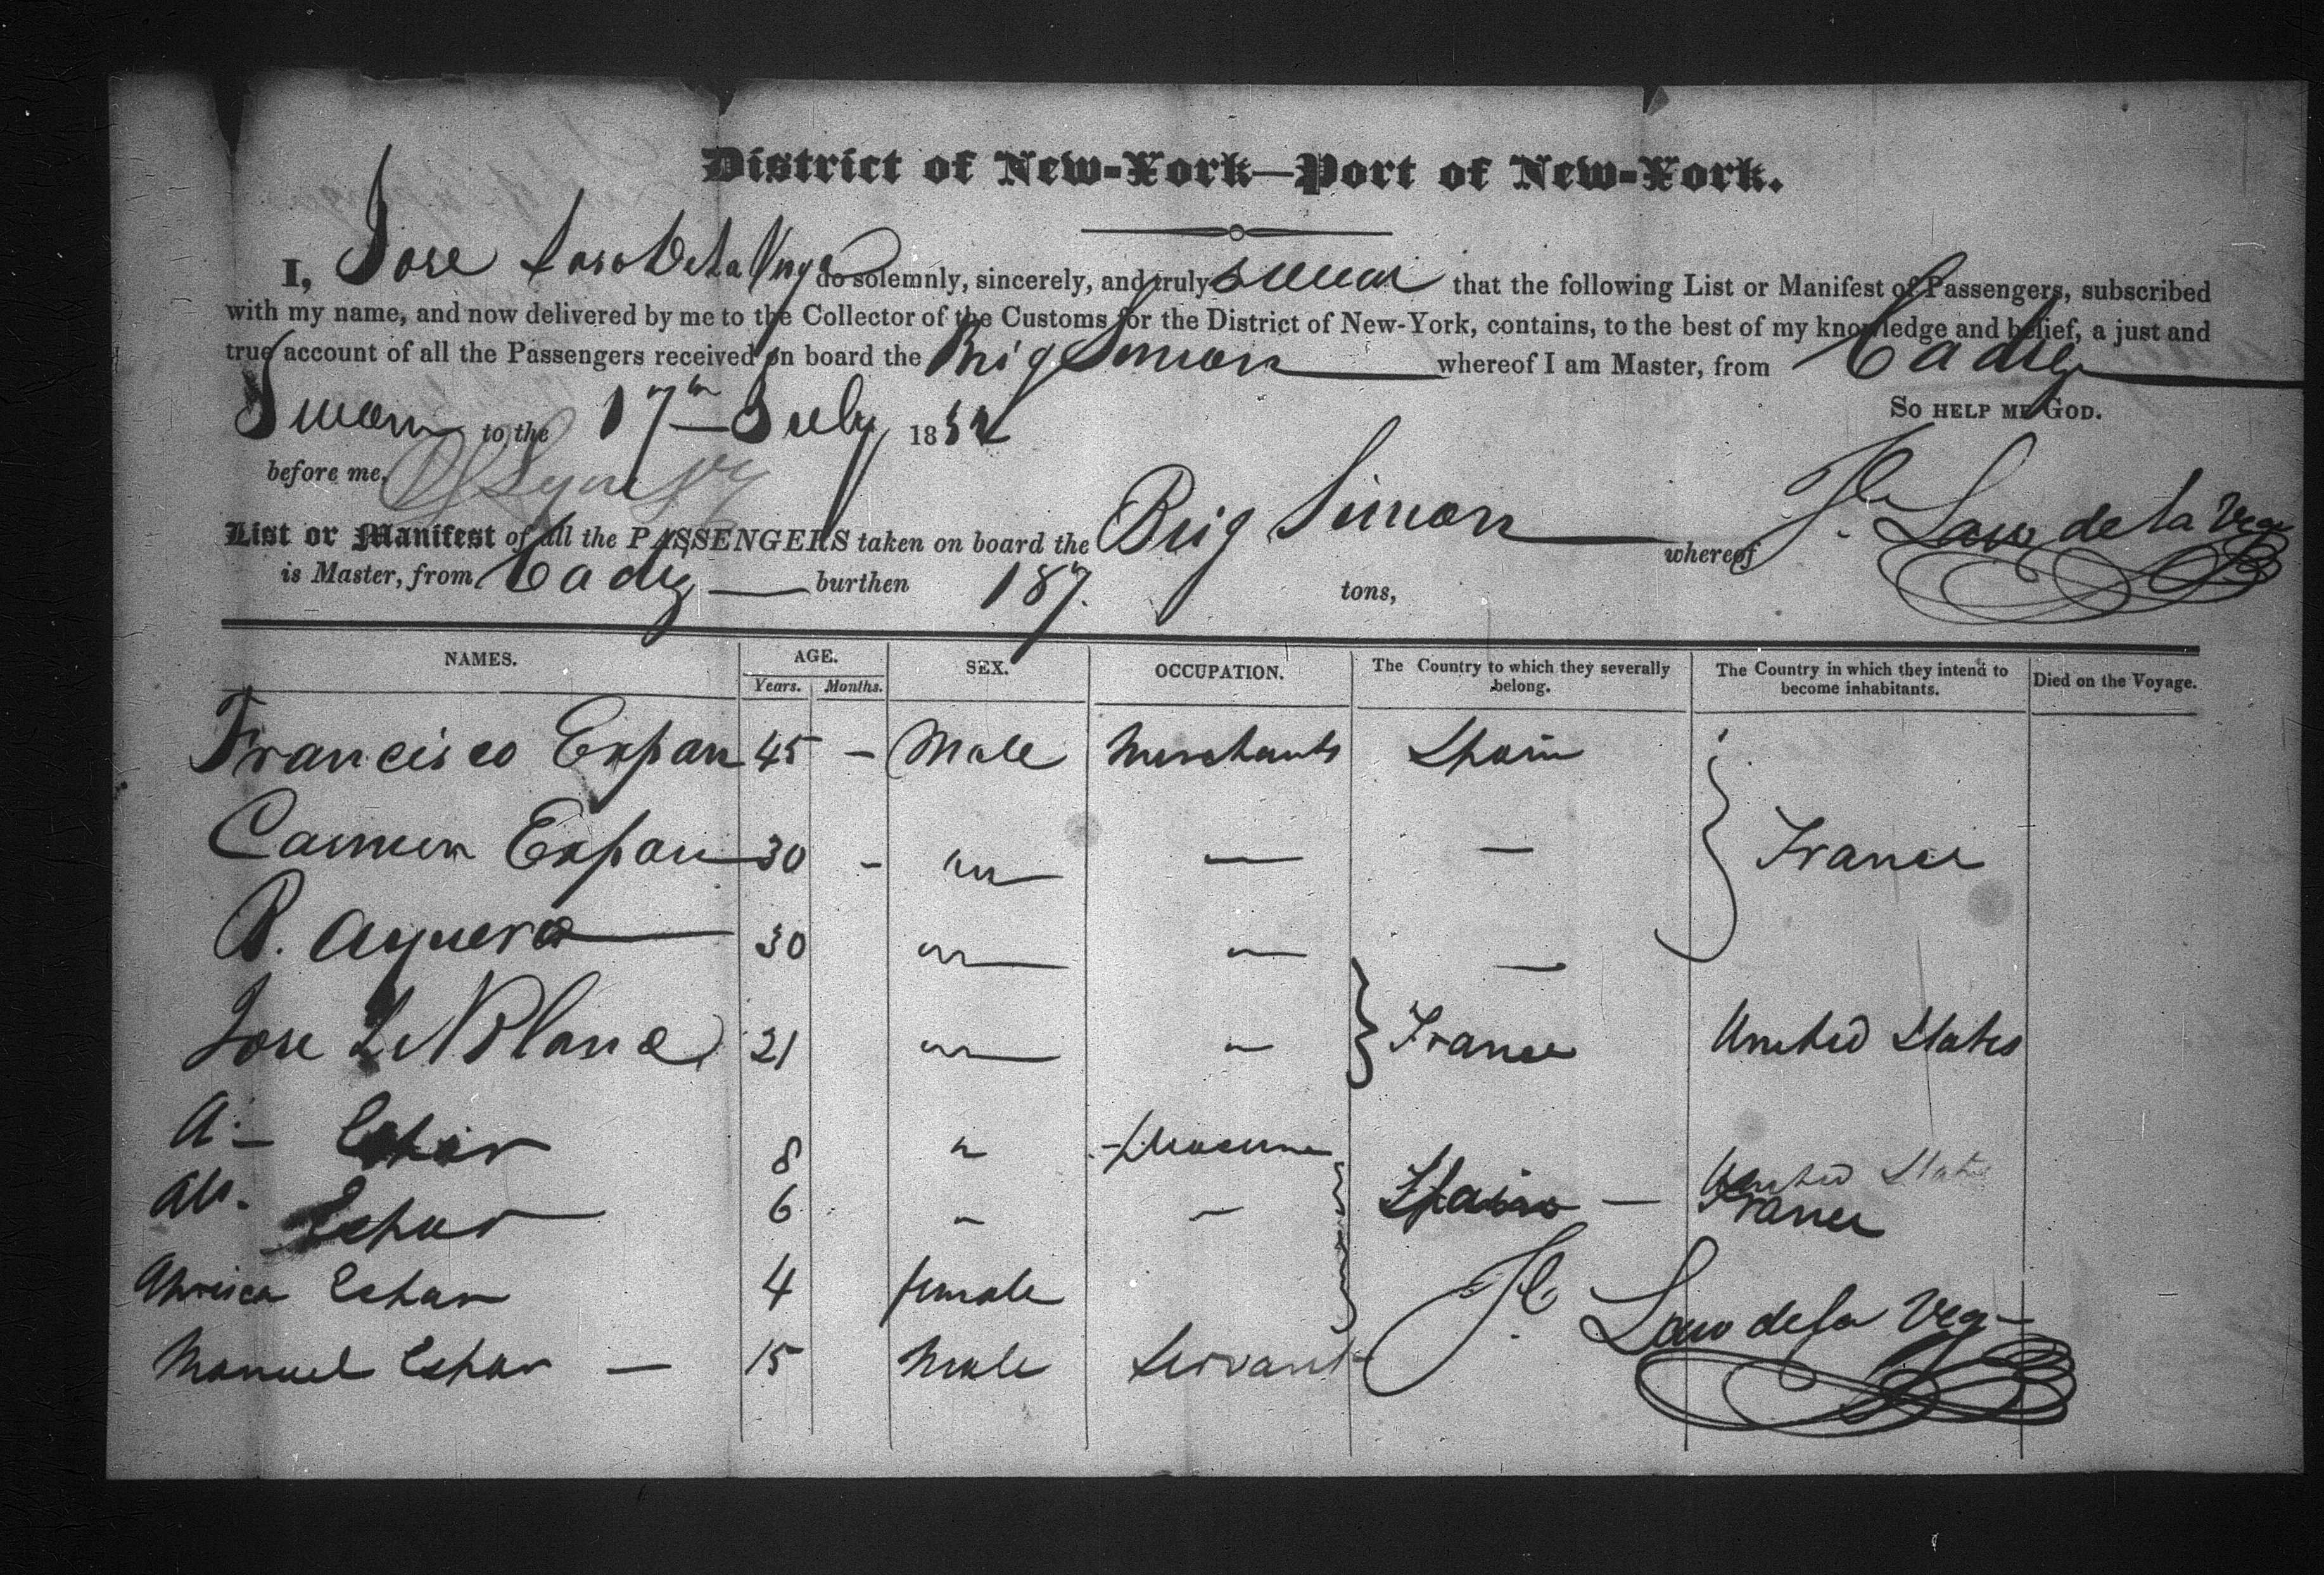 District of New-York—Port of New-York.
I, Jose Laso De La Vega do solemnly, sincerely, and truly swear that the following List or Manifest of Passengers, subscribed
with my name, and now delivered by me to the Collector of the Customs for the District of New-York, contains, to the best of my knowledge and belief, a just and
true account of all the Passengers received on board the Brig Simon whereof I am Master, from Cadiz
Sworn to the 17th July 1832 So HELP ME GOD.
before me,
List or Manifest of all the PASSENGERS taken on board the Brig Simon whereof Je. Laso de la Vega
is Master, from Cadiz burthen 187. tons,
NAMES. AGE. Years. Months. SEX. OCCUPATION. The Country to which they severally belong. The Country in which they intend to become inhabitants. Died on the Voyage.
Francisco Expan 45 – Male Merchants Spain
Carmen Expan 30 – " — — France
B. Aguera 30 " — —
Jose Blanc 21 " " France United States
A. Espan 8 "
Espan 6 " " Spain — United States France
Espan 4 female
Manuel Espan — 15 Male Servant
Je. Laso de la Vega